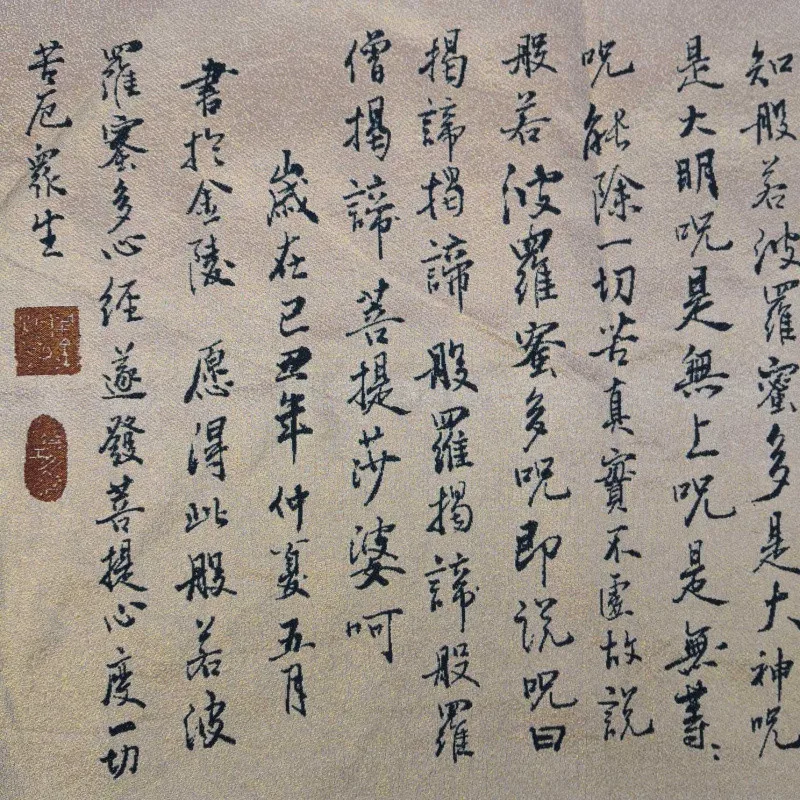 知般若波羅蜜多是大神呪
是大明呪是無上呪是無等〻
呪能除一切苦真實不虛故說
般若波羅蜜多呪即説呪曰
揭諦揭諦 般羅揭諦般羅
僧揭諦 菩提莎婆呵
歲在己丑年仲夏五月
書於金陵 愿得此般若波
羅蜜多心經遂發菩提心度一切
苦厄衆生